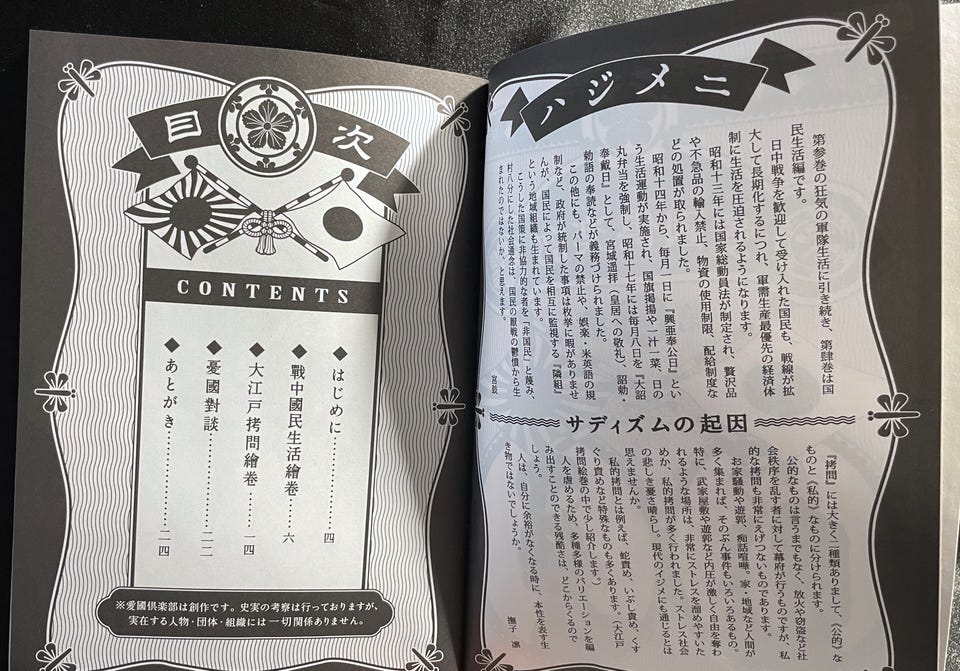 ハジメニ
第参巻の狂気の軍隊生活に引き続き、第肆巻は国
民生活編です。
日中戦争を歓迎して受け入れた国民も、戦線が拡
大して長期化するにつれ、軍需生産最優先の経済体
制に生活を圧迫されるようになります。
昭和十三年には国家総動員法が制定され、贅沢品
や不急品の輸入禁止、物資の使用制限、配給制度な
どの処置が取られました。
昭和十四年から、毎月一日に『興亜奉公日』とい
う生活運動が実施され、国旗掲揚や一汁一菜、日の
丸弁当を強制し、昭和十七年には毎月八日を『大詔
奉戴日』として、宮城遥拝（皇居への敬礼）、詔勅・
勅語の奉読などが義務づけられました。
この他にも、パーマの禁止や、娯楽・米英語の規
制など、政府が統制した事項は枚挙に暇がありませ
んが、国民によって国民を相互に監視する『隣組』
という地域組織も生まれています。
こうした国策に非協力的な者を「非国民」と蔑み、
村八分にした社会通念は、国民の厭戦の鬱憤から生
まれたのではないか、と思えます。
宮鼓
サディズムの起因
『拷問』には大きく二種類ありまして、《公的》な
ものと《私的》なものに分けられます。
公的なものは言うまでもなく、放火や窃盗など社
会秩序を乱す者に対して幕府が行うものですが、私
的な拷問も非常にえげつないものであります。
お家騒動や遊郭、痴話喧嘩。家・地域など人間が
多く集まれば、そのぶん事件もいろいろあるもの。
特に、武家屋敷や遊郭など内圧が激しく自由を奪わ
れるような場所は、非常にストレスを溜めやすいた
めか、私的拷問が多く行われました。ストレス社会
の悲しき憂さ晴らし。現代のイジメにも通じるとは
思えませんか。
私的拷問とは例えば、蛇責め、いぶし責め、くす
ぐり責めなど特殊なものも多くあります。（大江戸
拷問絵巻の中で少し紹介します。）
人を虐めるため、多種多様のバリエーションを編
み出すことのできる残酷さは、どこからくるので
しょう。
人は、自分に余裕がなくなる時に、本性を表す生
き物ではないでしょうか。
撫子 凛
目次
CONTENTS
◆はじめに……………四
◆戰中國民生活繪巻…六
◆大江戸拷問繪巻……一四
◆憂國對談……………二二
◆あとがき……………二四
※愛國倶楽部は創作です。史実の考察は行っておりますが、
実在する人物・団体・組織には一切関係ありません。